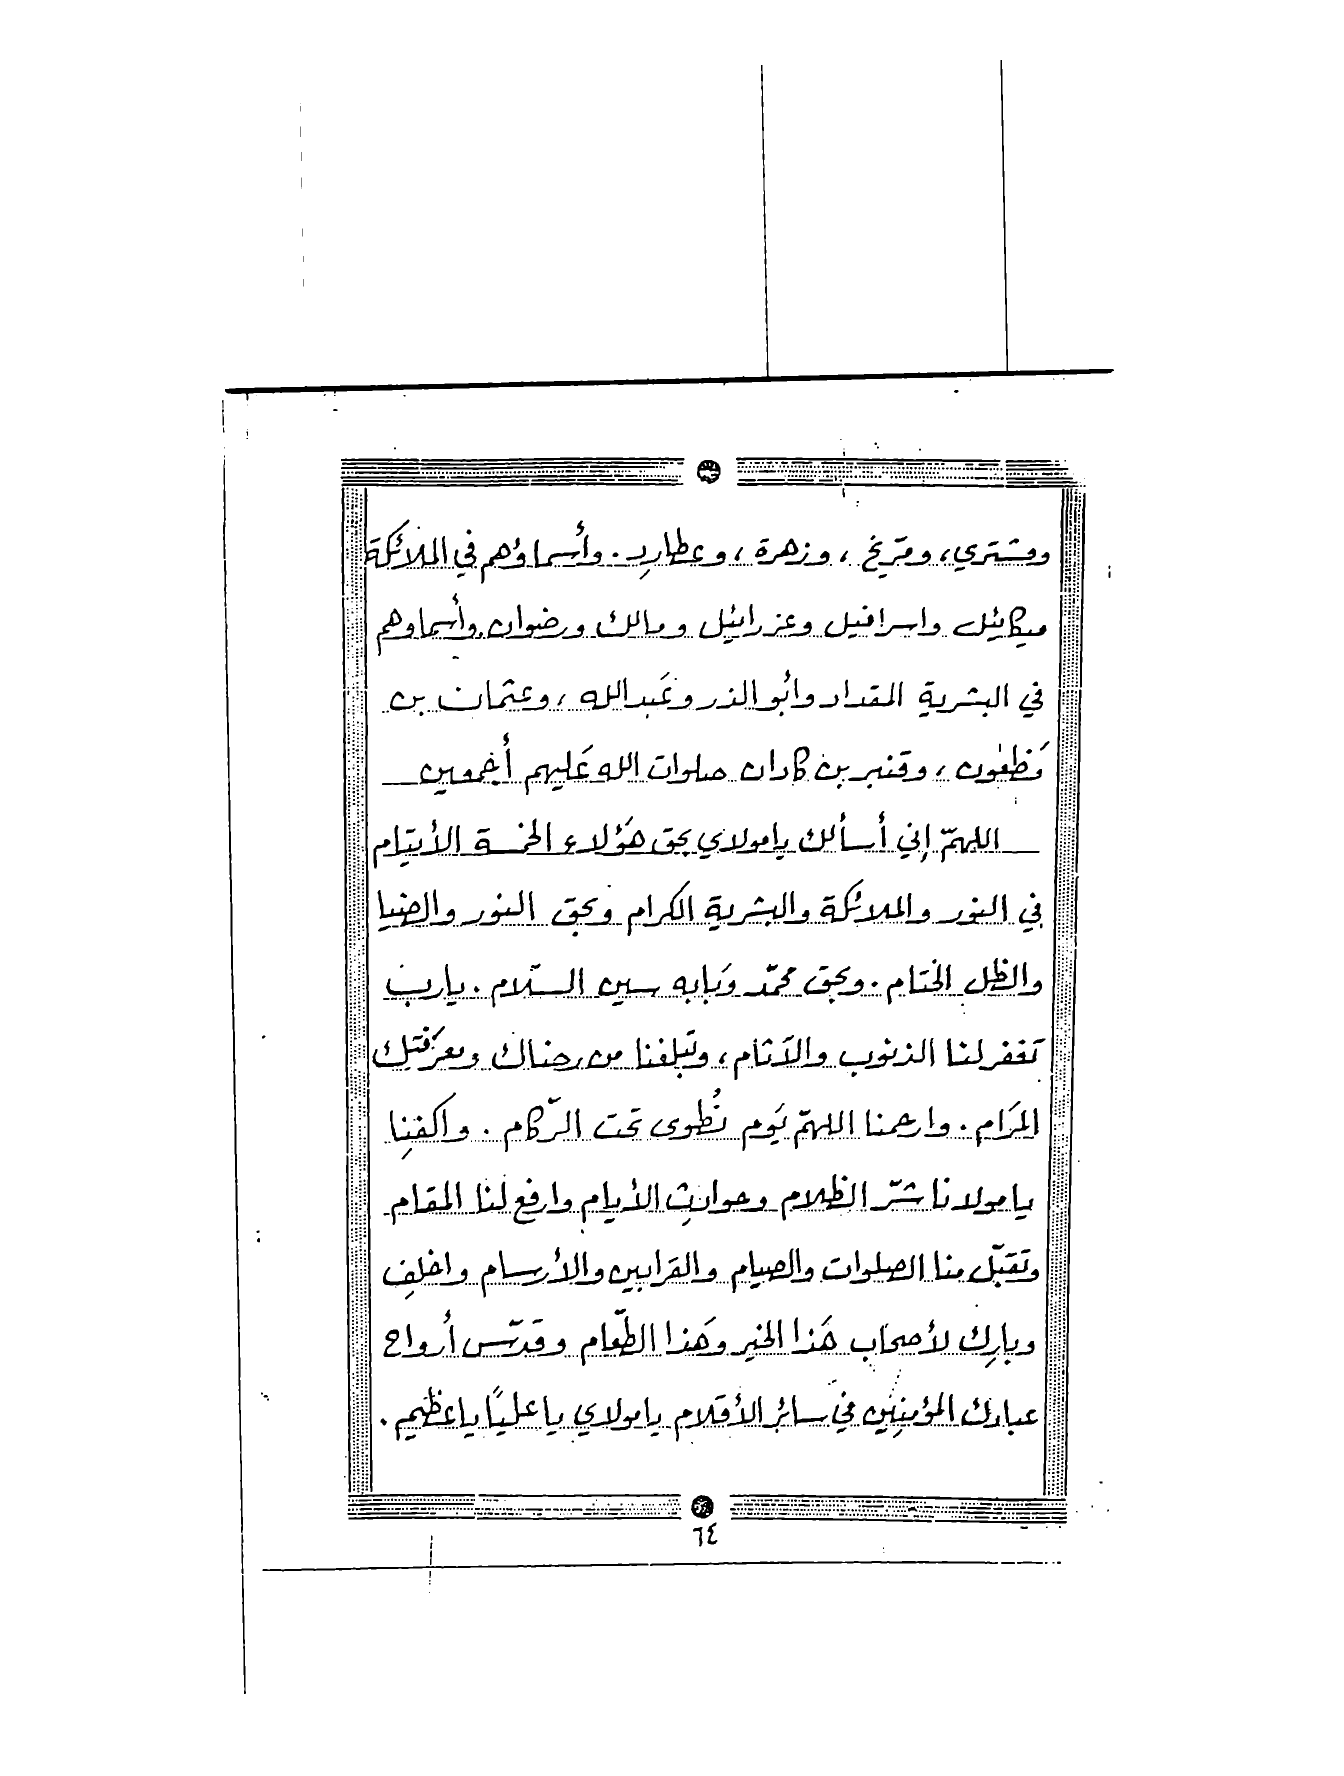 ومشتري، ومرّيخ، وزهرة، وعطارد. وأسماؤهم في الملائكة
ميكائيل واسرافيل وعزرائيل ومالك ورضوان وأسماوهم
في البشرية المقداد وأبو الذر وعَبد الله، وعثمان بن
مَظعون، وقنبر بن كادان صلوات الله عَليهم أجمعين
اللهمّ إني أسألك يامولاي بحق هَؤلاء الخمسة الأيتام
في النور والملائكة والبشرية الكرام وبحق النور والضيا
والظل الختام. وبحق محمّد وَبابه سين السّلام. يارب
تَغفر لنا الذنوب والآثام، وتَبلغنا من رضاك ومعرَفتِك
المَرام. وارحمنا اللهمّ يَوم نُطوى تحت الرّكام. واكفِنا
يا مولانا شرّ الظلام وحوادِث الأيام وارفع لنا المقام
وتَقبّل منا الصلوات والصيام والقرابين والأرسام واخلِف
وبارِك لأصحاب هَذا الخير وهَذا الطّعام وقَدّس أرواح
عبادك المؤمنِين في سائر الأقلام يامولاي يا عليًا يا عظيم.
٦٤